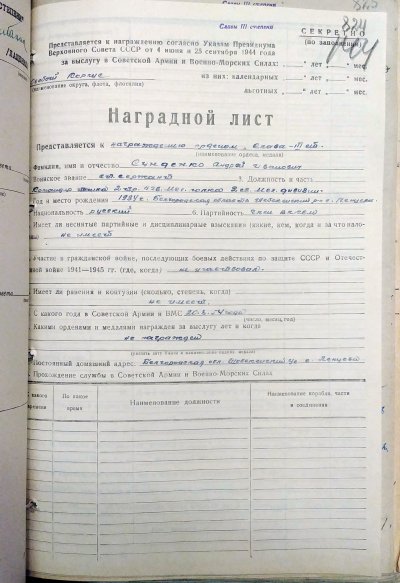 Славы III степени
СЕКРЕТНО
(по заполнении)
824
Представляется к награждению согласно Указам Президиума
Верховного Совета СССР от 4 июня и 23 сентября 1944 года
за выслугу в Советской Армии и Военно-Морских Силах: лет мес.
Особый Корпус из них: календарных лет мес.
(наименование округа, флота, флотилии)
льготных лет мес.
Наградной лист
Представляется к награждению орденом „Слава-III ст.
(наименование ордена, медали)
Фамилия, имя и отчество Сунденко Андрей Иванович
Воинское звание сержант 3. Должность и часть
Командир танка 2 мех. полка мех. дивизии
Год и место рождения 1934г. Белгородская область Шебекинский р-н с.
Национальность русский 6. Партийность член ВЛКСМ
Имеет ли взыскания партийные и дисциплинарные взыскания (какие, кем, когда и за что нало-
жены) не имеет
Участие в гражданской войне, последующих боевых действиях по защите СССР и Отечест-
венной войне 1941—1945 гг. (где, когда) не участвовал
Имеет ли ранения и контузии (сколько, степень, когда)
не имеет
С какого года в Советской Армии и ВМС 54 года
(число, месяц, год)
Какими орденами и медалями награжден за выслугу лет и когда
не награжден
Постоянный домашний адрес: Белгородская обл. Шебекинский с.
Прохождение службы в Советской Армии и Военно-Морских Силах
С какого времени
По какое время
Наименование должности
Наименование корабля, части и соединения